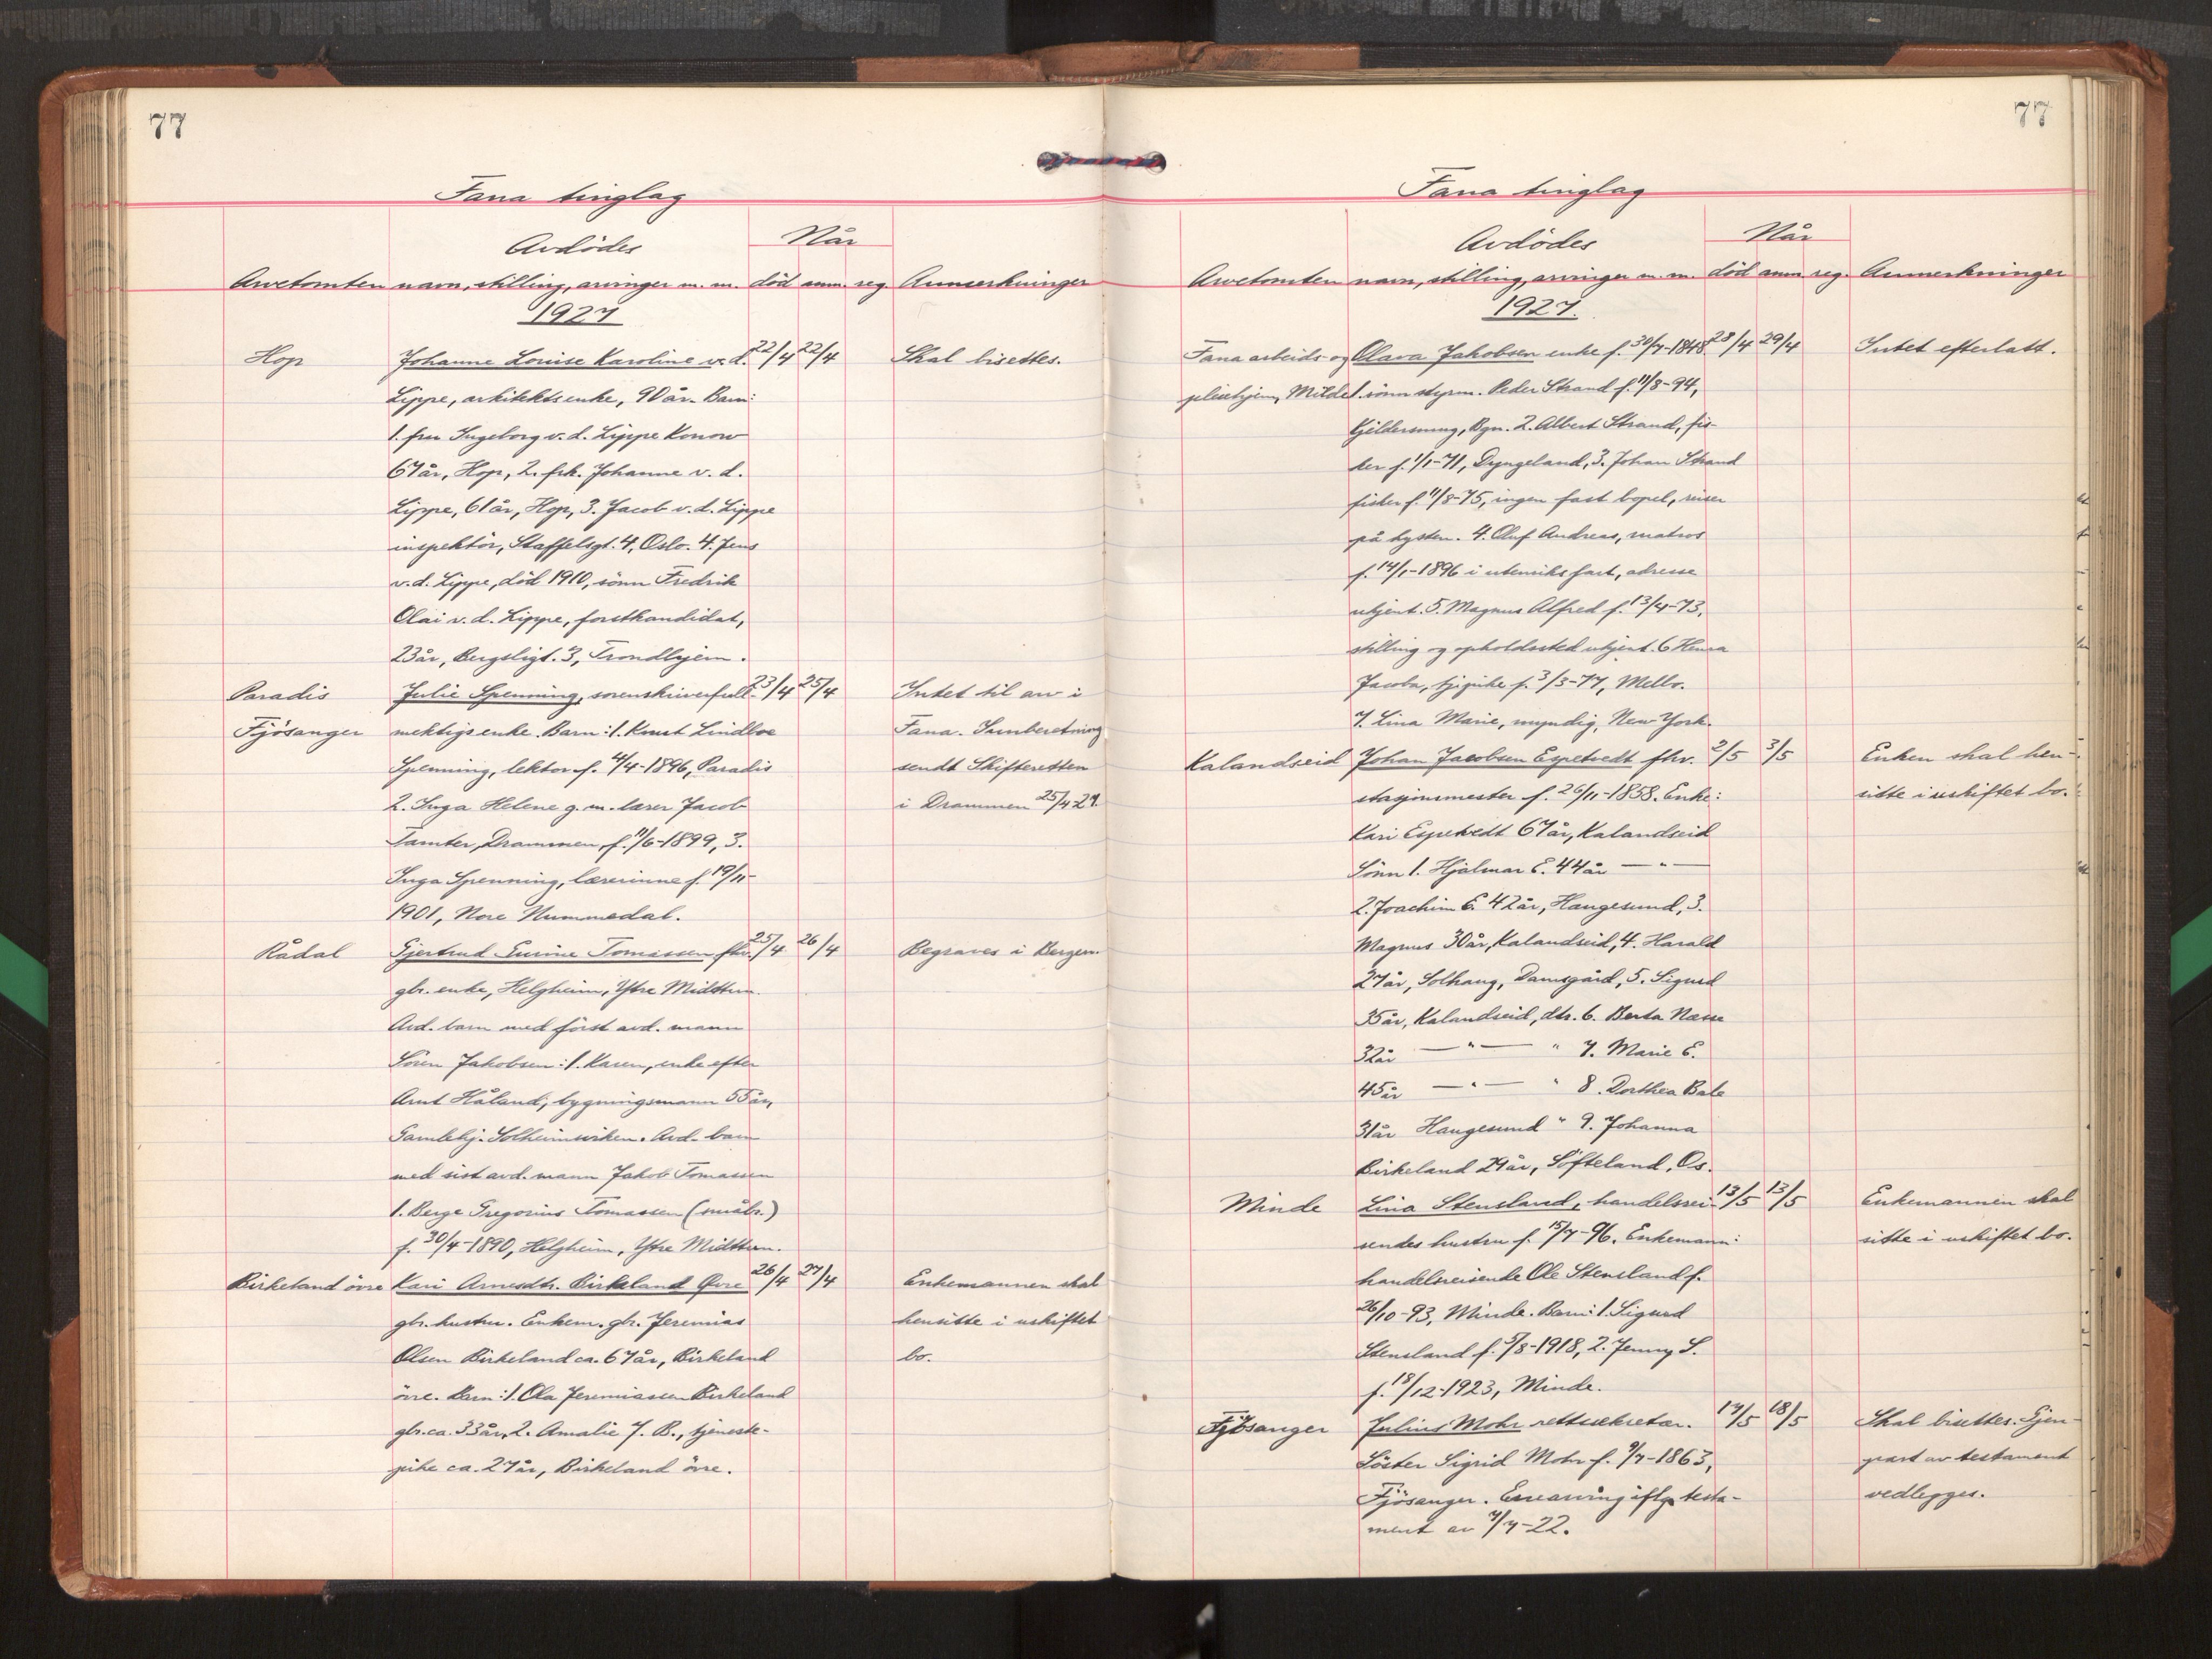 77
Fana tinglag
Avdødes
Når
Arvetomten navn, stilling, arvinger m. m. død anm. reg. Anmerkninger
1927
Hop Johanne Louise Karoline v. d. 22/4 22/4 Skal bisettes.
Lippe, arkitektsenke, 90 år. Barn:
1. fru Ingeborg v. d. Lippe Konow
67 år, Hop, 2. frk. Johanne v. d.
Lippe, 61 år, Hop, 3. Jacob v. d. Lippe
inspektör, Staffelsgt. 4, Oslo. 4. Jens
v. d. Lippe, död 1910, sönn Fredrik
Olai v. d. Lippe, forstkandidat,
23 år, Bergsligt. 3, Trondhjem.
Paradis Julie Spenning, sorenskriverfull- 23/4 25/4 Intet til arv i
Fjösanger mektigs enke. Barn: 1. Knut Lindboe Fana. Innberetning
Spenning, lektor f. 4/4-1896, Paradis sendt Skifteretten
2. Inga Helene g. m. lærer Jacob i Drammen 25/4 27.
Tamter, Drammen, f. 11/6-1899, 3.
Inga Spenning, lærerinne f. 19/11-
1901, Nore Nummedal.
Rådal Gjertrud Eurine Tomassen fhv. 25/4 26/4 Begraves i Bergen.
gbr. enke, Helgheim, Ytre Midttun.
Avd. barn med först avd. mann
Sören Jakobsen: 1. Karen, enke efter
Arnt Håland, bygningsmann 55 år,
Gamlehj. Solheimsviken. Avd. barn
med sist avd. mann Jakob Tomassen
1. Berge Gregorius Tomassen (småbr.)
f. 30/4-1890, Helgheim, Ytre Midttun.
Birkeland övre Kari Arnesdtr. Birkeland Øvre 26/4 27/4 Enkemannen skal
gbr. hustru. Enkem. gbr. Jeremias hensitte i uskiftet
Olsen Birkeland ca. 67 år, Birkeland bo.
övre. Barn: 1. Ola Jeremiassen Birkeland
gbr. ca. 33 år, 2. Amalie J. B., tjeneste-
pike ca. 27 år, Birkeland övre.
77
Fana tinglag
Avdødes
Når
Arvetomten navn, stilling, arvinger m. m. död anm reg. Anmerkninger
1927.
Fana arbeids- og Olava Jakobsen enke f. 30/7-1848 28/4 29/4 Intet efterlatt.
pleiehjem, Milde 1. sönn styrm. Peder Strand f. 11/8-94,
Kjildersund, Bgn. 2. Albert Strand, fis-
ker f. 1/1-71, Dyngeland, 3. Johan Strand
fisker f. 11/8-75, ingen fast bopel, reiser
på kysten. 4. Oluf Andreas, matros
f. 14/1-1896 i utenriks fart, adresse
ukjent. 5. Magnus Alfred f. 13/4-73,
stilling og opholdssted ukjent. 6
Jacoba, tj.pike f. 3/3-77, Melbo.
7. Lina Marie, myndig, New York.
Kalandseid Johan Jacobsen Espetvedt fhv. 2/5 3/5 Enken skal hen-
stasjonsmester f. 26/11-1858. Enke: sitte i uskiftet bo.
Kari Espetvedt 67 år, Kalandseid
Sönn 1. Hjalmar E. 44 år — " —
2. Joachim E. 42 år, Haugesund, 3.
Magnus 30 år, Kalandseid, 4. Harald
27 år, Solhaug, Damsgård, 5. Sigurd
35 år, Kalandseid, dtr. 6. Berta Næsse
32 år — " — " 7. Marie E.
45 år — " — " 8. Dorthea Bale
31 år Haugesund " 9. Johanna
Birkeland 29 år, Söfteland, Os.
Minde Lina Stensland, handelsrei- 13/5 13/5 Enkemannen skal
sendes hustru f. 15/7-96. Enkemann: sitte i uskiftet bo.
handelsreisende Ole Stensland f.
26/10-93, Minde. Barn: 1. Sigurd
Stensland f. 5/8-1918, 2. Jenny S.
f. 18/12-1923, Minde.
Fjösanger Julius Mohr rettssekretær. 17/5 18/5 Skal bisettes. Gjen-
Söster Sigrid Mohr f. 9/7-1863, part av testament
Fjösanger. Enearving iflg. testa- vedlegges.
ment av 4/7-22.